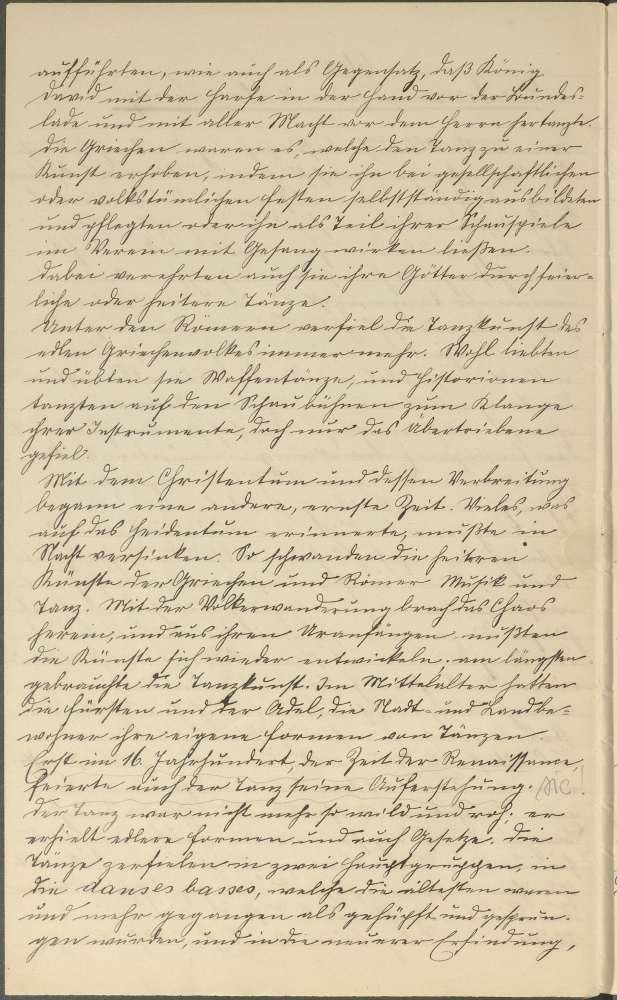 aufführten, wie auch als Gegensatz, daß König
David mit der Harfe in der Hand vor der Bundes-
lade und mit aller Macht vor dem Herrn hertanzte.
Die Griechen waren es, welche den Tanz zu einer
Kunst erhoben, indem sie ihn bei gesellschaftlichen
oder volkstümlichen Festen selbstständig ausbildeten
und pflegten oder ihn als Teil ihrer Schauspiele
im Verein mit Gesang wirken ließen.
Dabei verehrten auch sie ihre Götter durch feier-
liche oder heitere Tänze.
Unter den Römern verfiel die Tanzkunst des
edlen Griechenvolkes immer mehr. Wohl liebten
und übten sie Waffentänze, und Historionen
tanzten auf den Schaubühnen zum Klange
ihrer Instrumente, doch nur das Übertriebene
gefiel.
Mit dem Christentum und dessen Verbreitung
begann eine andere, ernste Zeit. Vieles, was
auf das Heidentum erinnerte, mußte in
Nacht versinken. So schwanden die heiteren
Künste der Griechen und Römer Musik und
Tanz. Mit der Völkerwanderung brach das Chaos
herein, und aus ihren Uranfängen mußten
die Künste sich wieder entwickeln; am längsten
gebrauchte die Tanzkunst. Im Mittelalter hatten
die Fürsten und der Adel, die Stadt- und Landbe-
wohner ihre eigene Formen von Tänzen.
Erst im 16. Jahrhundert, der Zeit der Renaissance,
feierte auch der Tanz seine Auferstehung.
Der Tanz war nicht mehr so wild und roh; er
erhielt edlere Formen und auch Gesetze. Die
Tänze zerfielen in zwei Hauptgruppen, in
die danses basses, welche die ältesten waren
und mehr gegangen als gehüpft und gesprun-
gen wurden, und in die neuerer Erfindung,